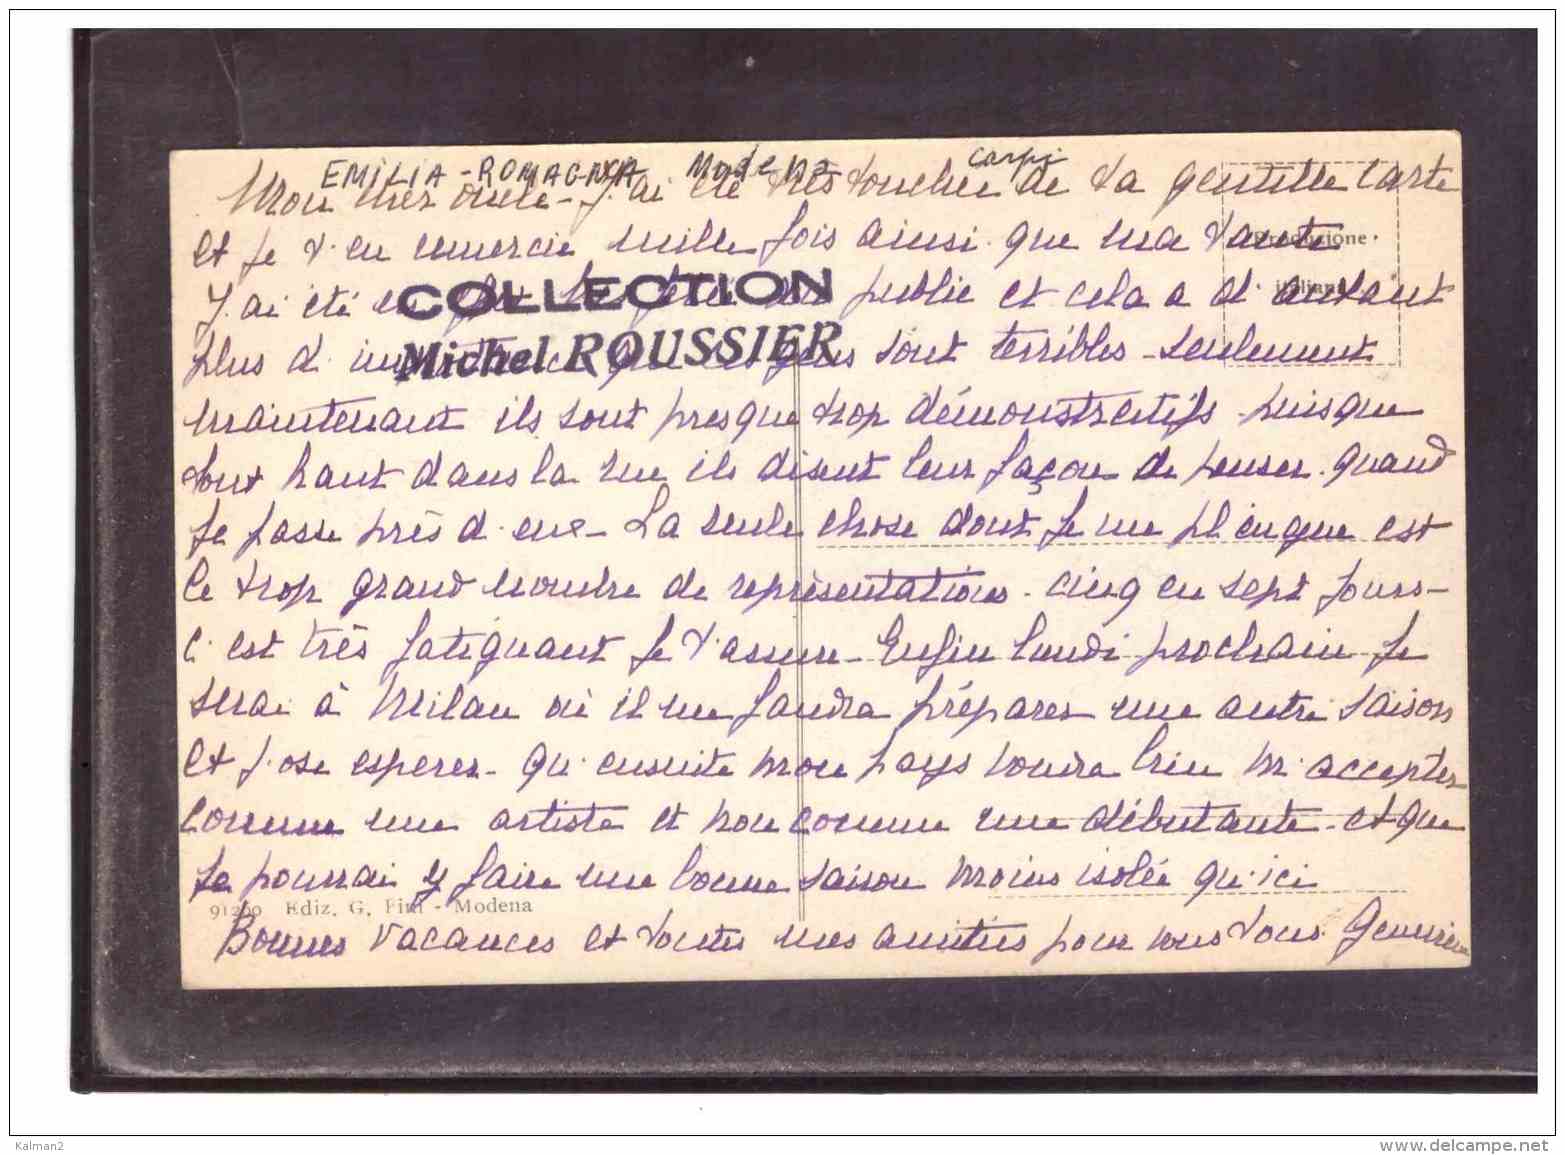 EMILIA - ROMAGNA Modena Carpi
Mon cher oncle - J'ai été très touchée de ta gentille carte
et je t'en remercie mille fois ainsi que ma tante
Produzione
J'ai été public et cela a d'autant
italiana
COLLECTION
plus d' que ces gens sont terribles - seulement
Michel ROUSSIER
maintenant ils sont presque trop démonstratifs - puisque
tout haut dans la rue ils disent leur façon de penser - quand
je passe près d'eux - La seule chose dont je me plaingne est
le trop grand nombre de représentations - cinq en sept jours -
c'est très fatiguant je t'assure - Enfin lundi prochain je
serai à Milan où il me faudra préparer une autre saison
et j'ose espérer - qu'ensuite mon pays voudra bien m'accepter
comme une artiste et non comme une débutante - et que
je pourrai y faire une bonne saison moins isolée qu'ici
91200 Ediz. G. Pini - Modena
Bonnes vacances et toutes mes amitiés pour vous tous. Geneviève
Kalman2
www.delcampe.net